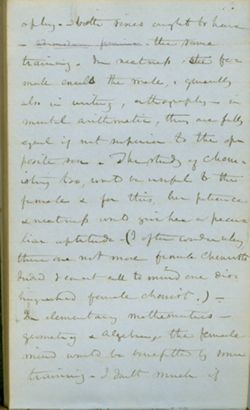 ophy. - Both sexes ought to have
the same
training. In neatness the fe
male excells the male, & generally
also in writing, orthography - in
mental arithmetic, they are fully
equal if not superior to the op
posite sex. The study of chem
istry too, would be useful to the
female & for this, her patience
& neatness would give her a pecu
liar aptitude - (I often wonder why
there are not more female chemists
indeed I cannot call to mind one dis
tinguished female chemist.) -
In elementary mathematics -
geometry & algebra, the female
mind would be benefitted by some
training - I doubt much if